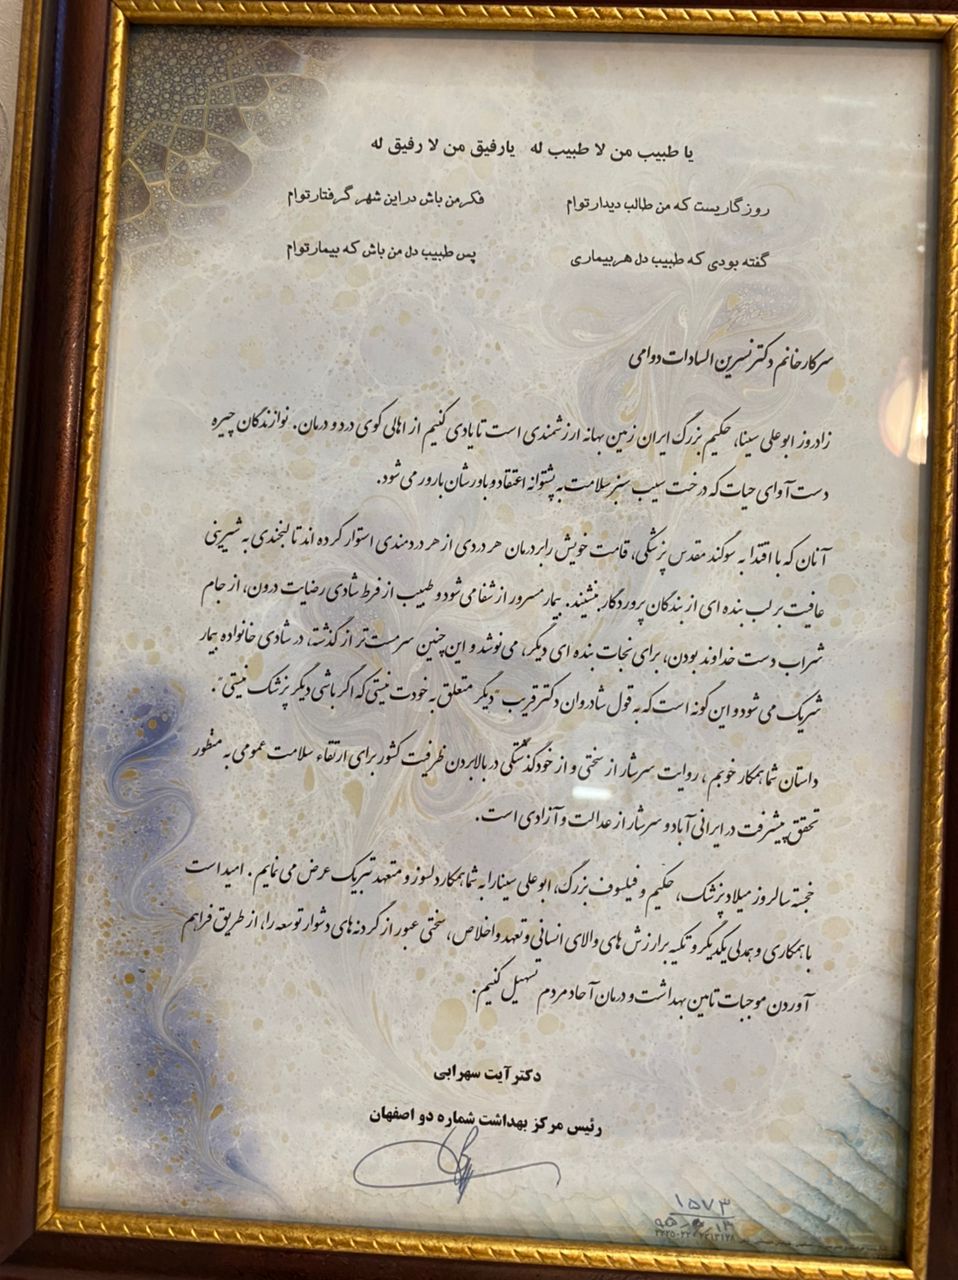 یا طبیب من لا طبیب له یارفیق من لا رفیق له
روزگاریست که من طالب دیدار توام فکر من باش در این شهر گرفتار توام
گفته بودی که طبیب دل هر بیماری پس طبیب دل من باش که بیمار توام
سرکار خانم دکتر نسرین السادات دوامی
زادروز ابوعلی سینا، حکیم بزرگ ایران زمین بهانه ارزشمندی است تا یادی کنیم از اهالی کوی درد و درمان. نوازندگان چیره
دست آوای حیات که درخت سیب سبز سلامت به پشتوانه اعتقاد و باورشان بارور می شود.
آنان که با اقتدا به سوگند مقدس پزشکی، قامت خویش را بر درمان هر دردی از هر دردمندی استوار کرده اند تا لبخندی به شیرینی
عافیت بر لب بنده ای از بندگان پروردگار بنشیند. بیمار مسرور از شفا می شود و طبیب از فرط شادی رضایت درون، از جام
شراب دست خداوند بودن، برای نجات بنده ای دیگر، می نوشد و این چنین سرمست تر از گذشته، در شادی خانواده بیمار
شریک می شود و این گونه است که به قول شادروان دکتر قریب "دیگر متعلق به خودت نیستی که اگر باشی دیگر پزشک نیستی".
داستان شما همکار خوبم، روایت سرشار از سختی و از خودگذشتگی در بالا بردن ظرفیت کشور برای ارتقاء سلامت عمومی به منظور
تحقق پیشرفت در ایرانی آباد و سرشار از عدالت و آزادی است.
خجسته سالروز میلاد پزشک، حکیم و فیلسوف بزرگ، ابوعلی سینا را به شما همکار دلسوز و متعهد تبریک عرض می نمایم. امید است
با همکاری و همدلی یکدیگر و تکیه بر ارزش های والای انسانی و تعهد و اخلاص، سختی عبور از گردنه های دشوار توسعه را، از طریق فراهم
آوردن موجبات تامین بهداشت و درمان آحاد مردم تسهیل کنیم.
دکتر آیت سهرابی
رئیس مرکز بهداشت شماره دو اصفهان
۱۵۷۳